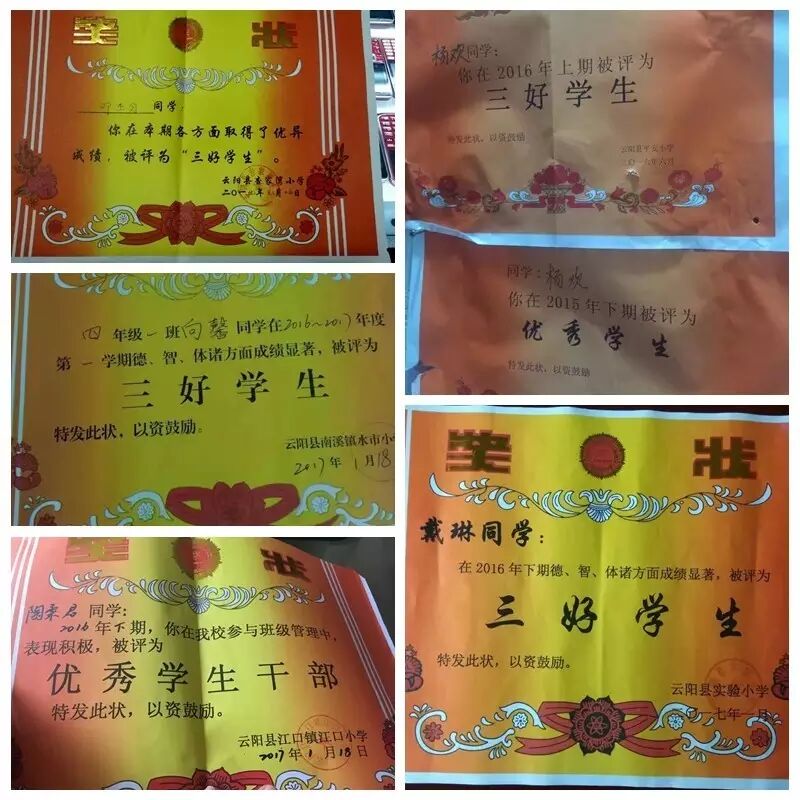 奖 状
同学:
你在本期各方面取得了优异
成绩,被评为“三好学生”。
小学
杨欢同学:
你在2016年上期被评为
三好学生
特发此状,以资鼓励
云阳县平安小学
二〇一六年六月
同学:杨欢
你在2015年下期被评为
优秀学生
特发此状,以资鼓励
四年级一班向馨同学在2016~2017年度
第一学期德、智、体诸方面成绩显著,被评为
三好学生
特发此状,以资鼓励。
云阳县南溪镇水市小
2017年1月18
奖 状
陶来君同学:
2016年下期,你在我校参与班级管理中,
表现积极,被评为
优秀学生干部
特发此状,以资鼓励。
云阳县江口镇江口小学
2017年1月18日
奖 状
戴琳同学:
在2016年下期德、智、体诸方面成绩显著,被评为
三好学生
特发此状,以资鼓励。
云阳县实验小学
二〇一七年一月